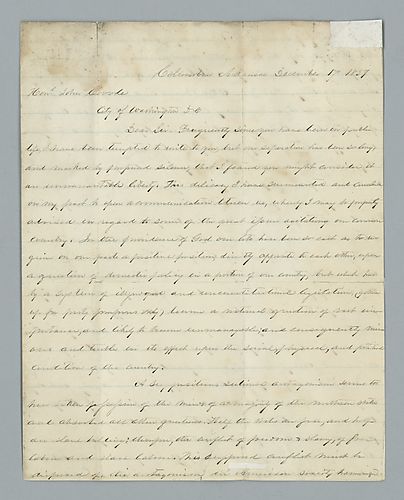 Columbus Arkansas December 19 1857
Honl John Covode
City of Washington D.C
Dear Sir. Frequently since you have been in public
life I have been tempted to write to you, but our separation has been so long
and marked by profound silence that I feared you might consider it
an unwarrantable liberty. This delicacy I have surmounted and concluded
on my part to open a communication between us, whereby I may be properly
advised in regard to some of the great issues agitating our common
Country. In the providence of God our lots have been so cast as to
on our part a position directly opposite to each other, upon
a question of domestic policy in a portion of our country, but which has
by a system of and unconstitutional legislation,
up for party purposes only, become a national question of vast im-
portance, and likely to become unmanageable, and consequently
and in its effect upon the social, physical, and political
Condition of the Country.
A sectional antagonism seems to
have taken possession of the minds of a majority of the northern states
and absorbed all other questions. Half the states are free, and half
are slave holding; therefore, the conflict of freedom &amp; slavery, of free
labor and slave labor. This supposed conflict must be
disposed of, its antagonism die American society